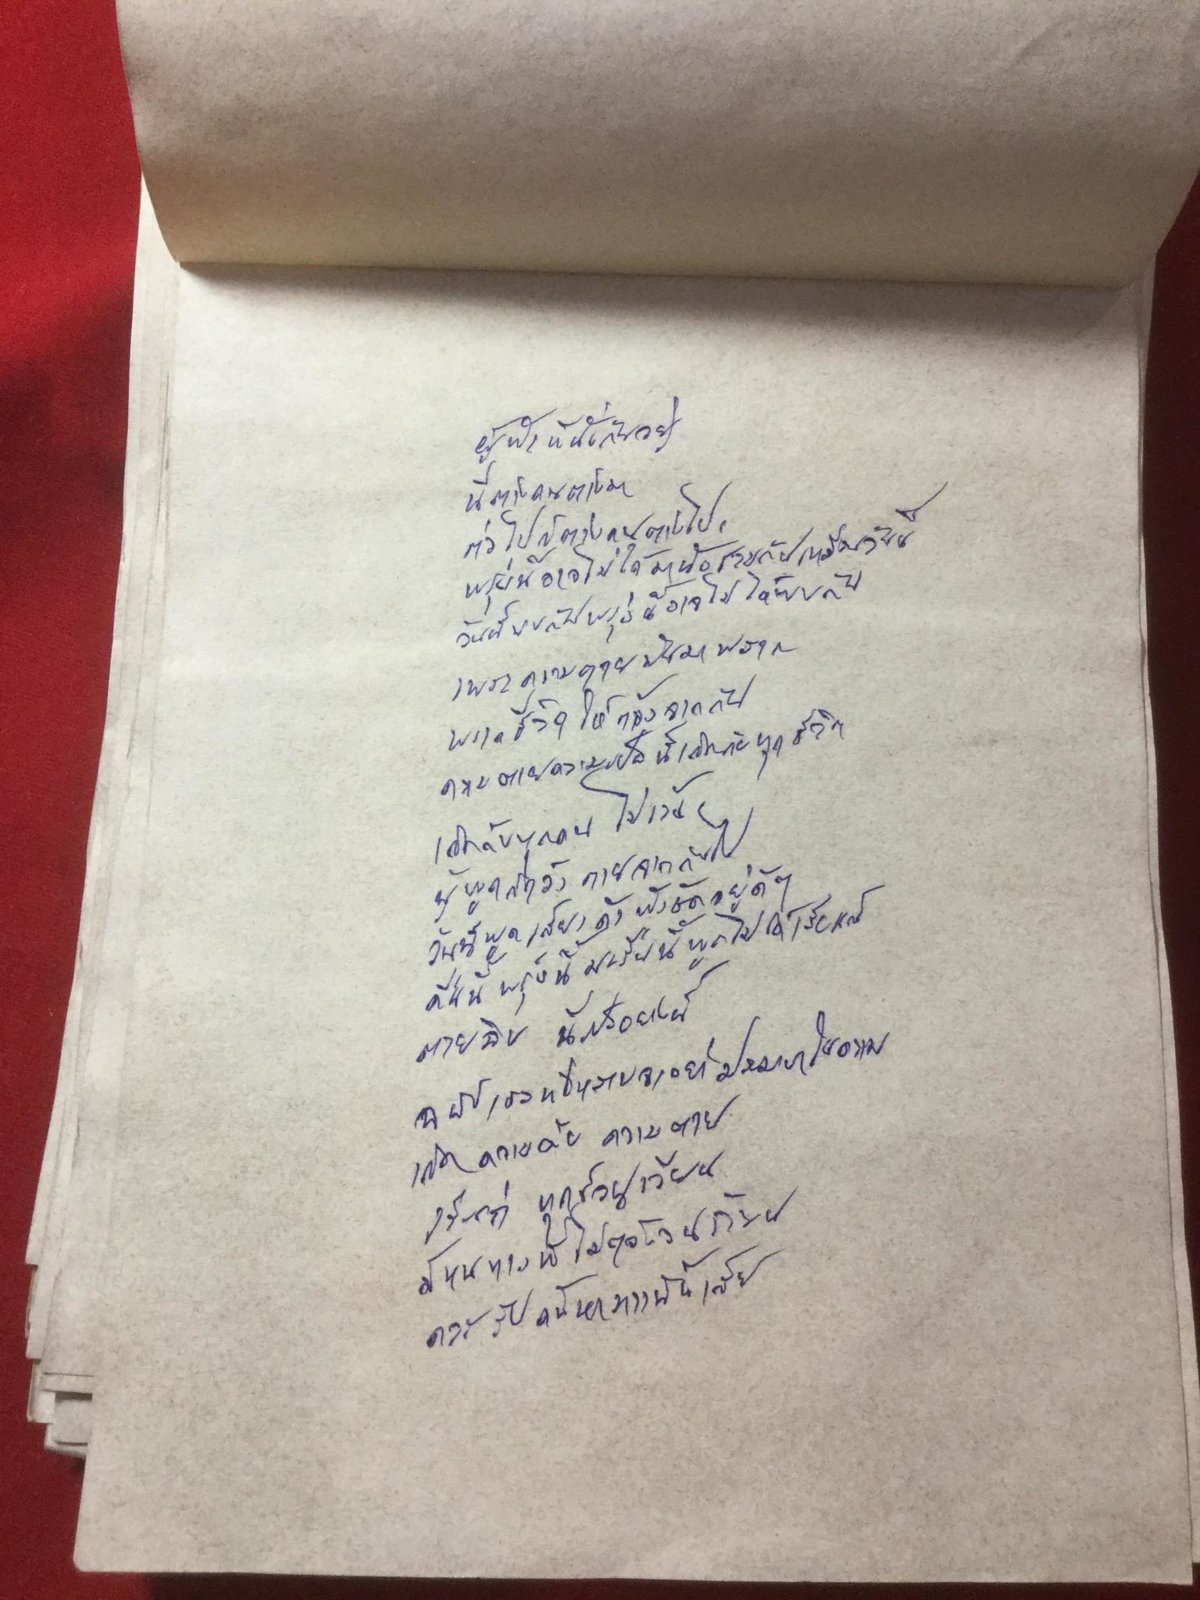 ผู้ฟังที่นั่งกันอยู่
นี่ต่างคนต่างมา
ต่อไปก็ต่างคนต่างไป
พรุ่งนี้อาจไม่ได้มานั่งรวมกันเหมือนวันนี้
วันนี้พบกันพรุ่งนี้อาจไม่ได้พบกัน
เพราะความตายมันมาพราก
พรากชีวิตให้ห่างจากกัน
ความตายความ นี้เกิดกับทุกชีวิต
เกิดกับทุกคน ไม่เว้น
ผู้พูดก็หวัง ตายจากกันไป
วันนี้พูดเสียงดังฟังชัดอยู่ดีๆ
คืนนี้ พรุ่งนี้ มะรืนนี้พูดไม่ได้เสียแล้ว
ตาย นี่หรือ
ฉะนั้น อย่าประมาทในความ
เกิด ความดับ ความตาย
ทุกข์วนเวียน
มีหนทางที่ไม่ต้องวนเวียน
ควรรีบค้นหาทางนี้เสีย